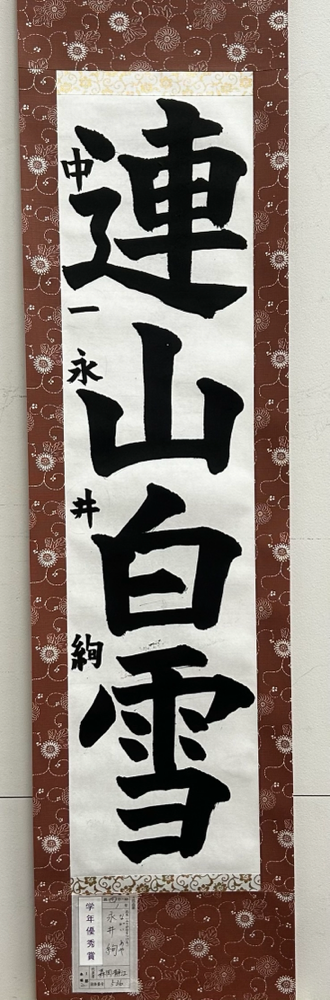 連山白雪
中一 永井絢
学年優秀賞
永井絢